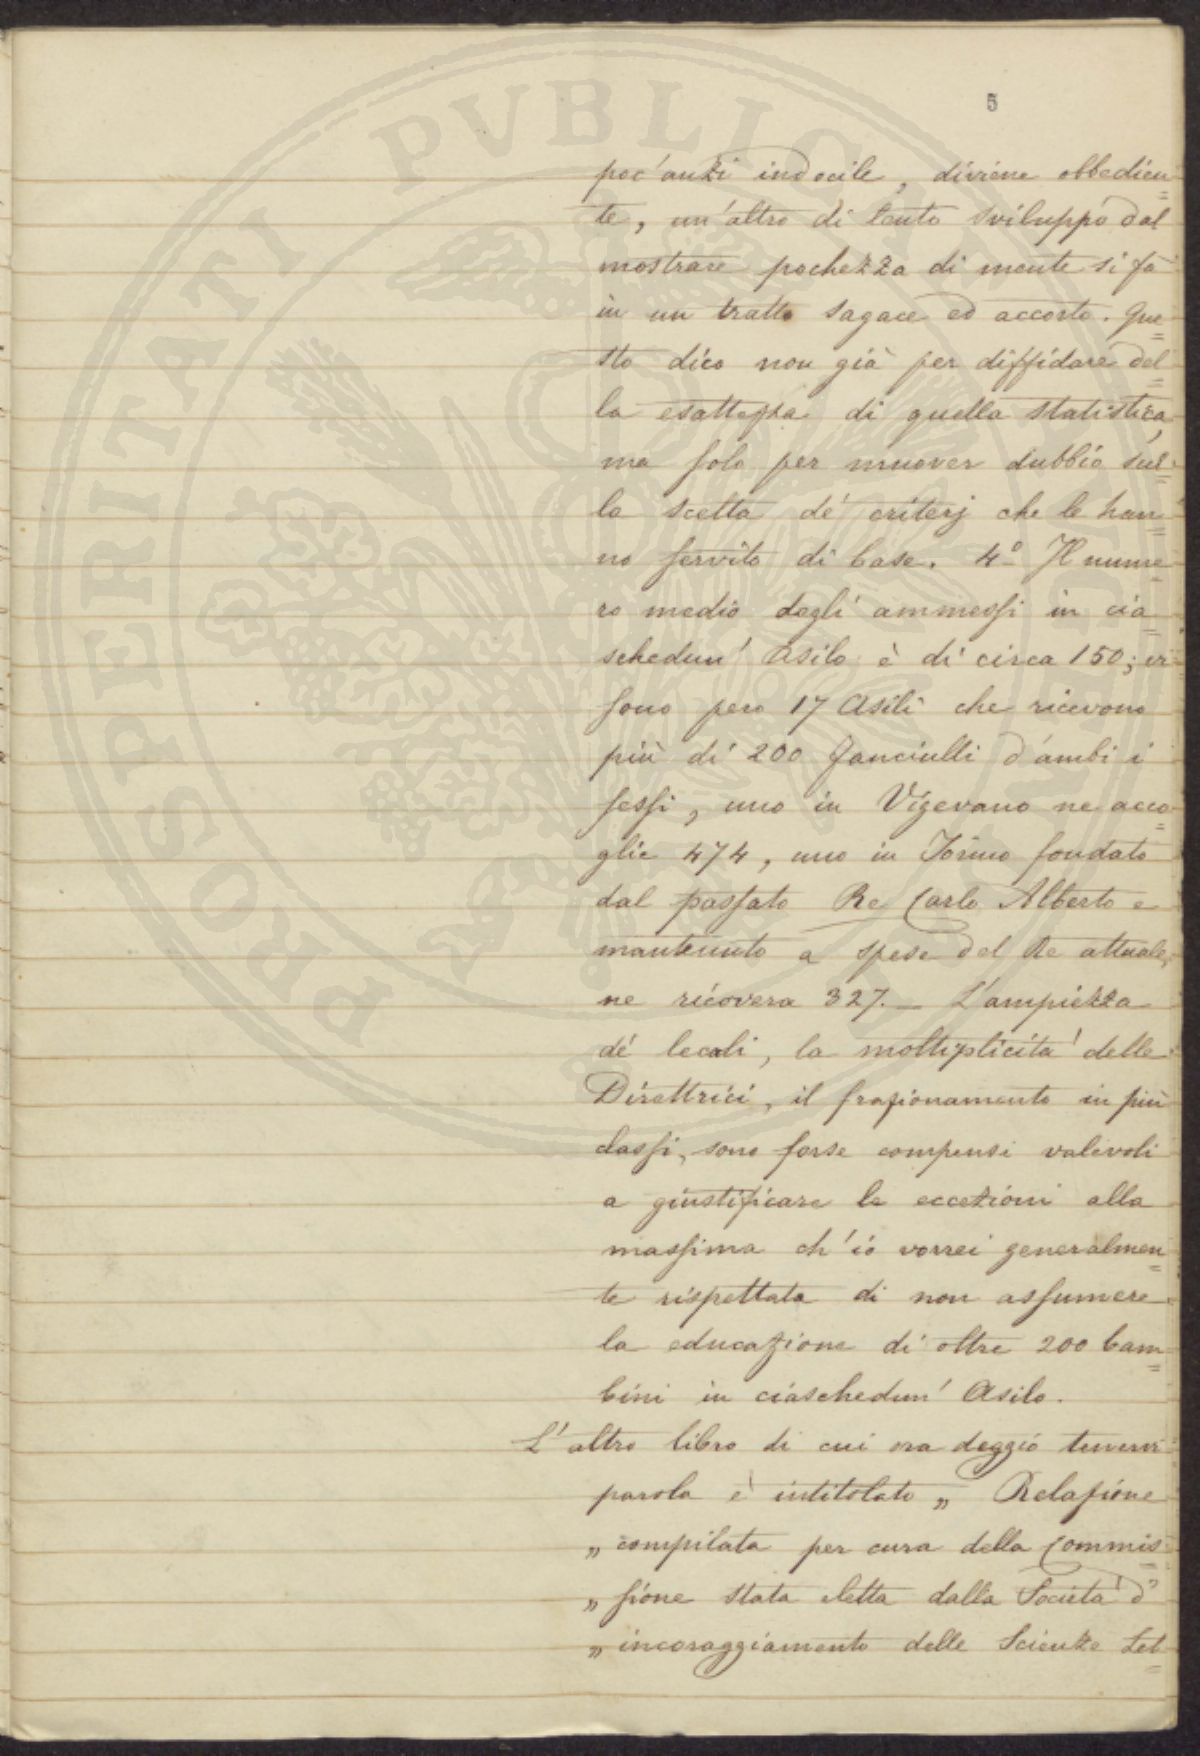 5
poc'anzi indocile, diviene obbedien=
te, un'altro di lento sviluppo dal
mostrare pochezza di mente si fà
in un tratto sagace ed accorto. Que=
sto dico non già per diffidare del=
la esattezza di quella statistica,
ma solo per muover dubbio sul=
la scelta de' criterj che le han=
no servito di base. 4º Il nume=
ro medio degli ammessi in cia=
schedun' Asilo è di circa 150; vi
sono pero 17 Asili che ricevono
più di 200 fanciulli d'ambi i
sessi, uno in Vigevano ne acco=
glie 474, uno in Torino fondato
dal passato Re Carlo Alberto e
mantenuto a spese del Re attuale,
ne ricovera 327. — L'ampiezza
de' locali, la moltiplicita' delle
Direttrici, il frazionamento in più
classi, sono forse compensi valevoli
a giustificare le eccezioni alla
massima ch'io vorrei generalmen=
te rispettata di non assumere
la educazione di oltre 200 bam=
bini in ciaschedun' Asilo.
L'altro libro di cui ora deggio tenervi
parola è intitolato „ Relazione
„ compilata per cura della Commis=
„ sione stata eletta dalla Società d'
„ incoraggiamento delle Scienze Let=
PROSPERITATI PVBLICAE